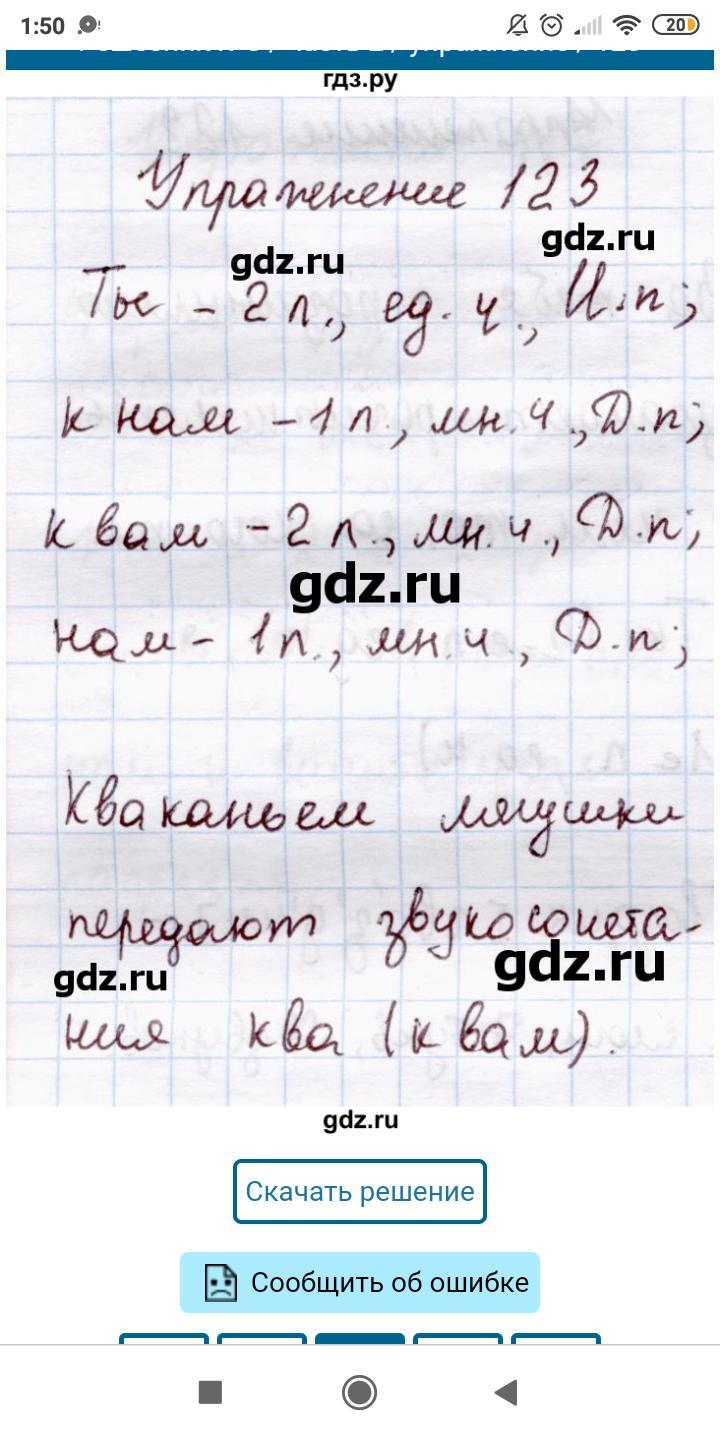 1:50
20
гдз.ру
Упражнение 123
gdz.ru
gdz.ru
Ты - 2 л., ед. ч., И.п;
к нам - 1 л., мн. ч., Д.п;
к вам - 2 л., мн. ч., Д.п;
gdz.ru
нам - 1 л., мн. ч., Д.п;
Кваканьем лягушки
передают звукосочета-
gdz.ru
gdz.ru
ния ква (к вам).
gdz.ru
Скачать решение
Сообщить об ошибке